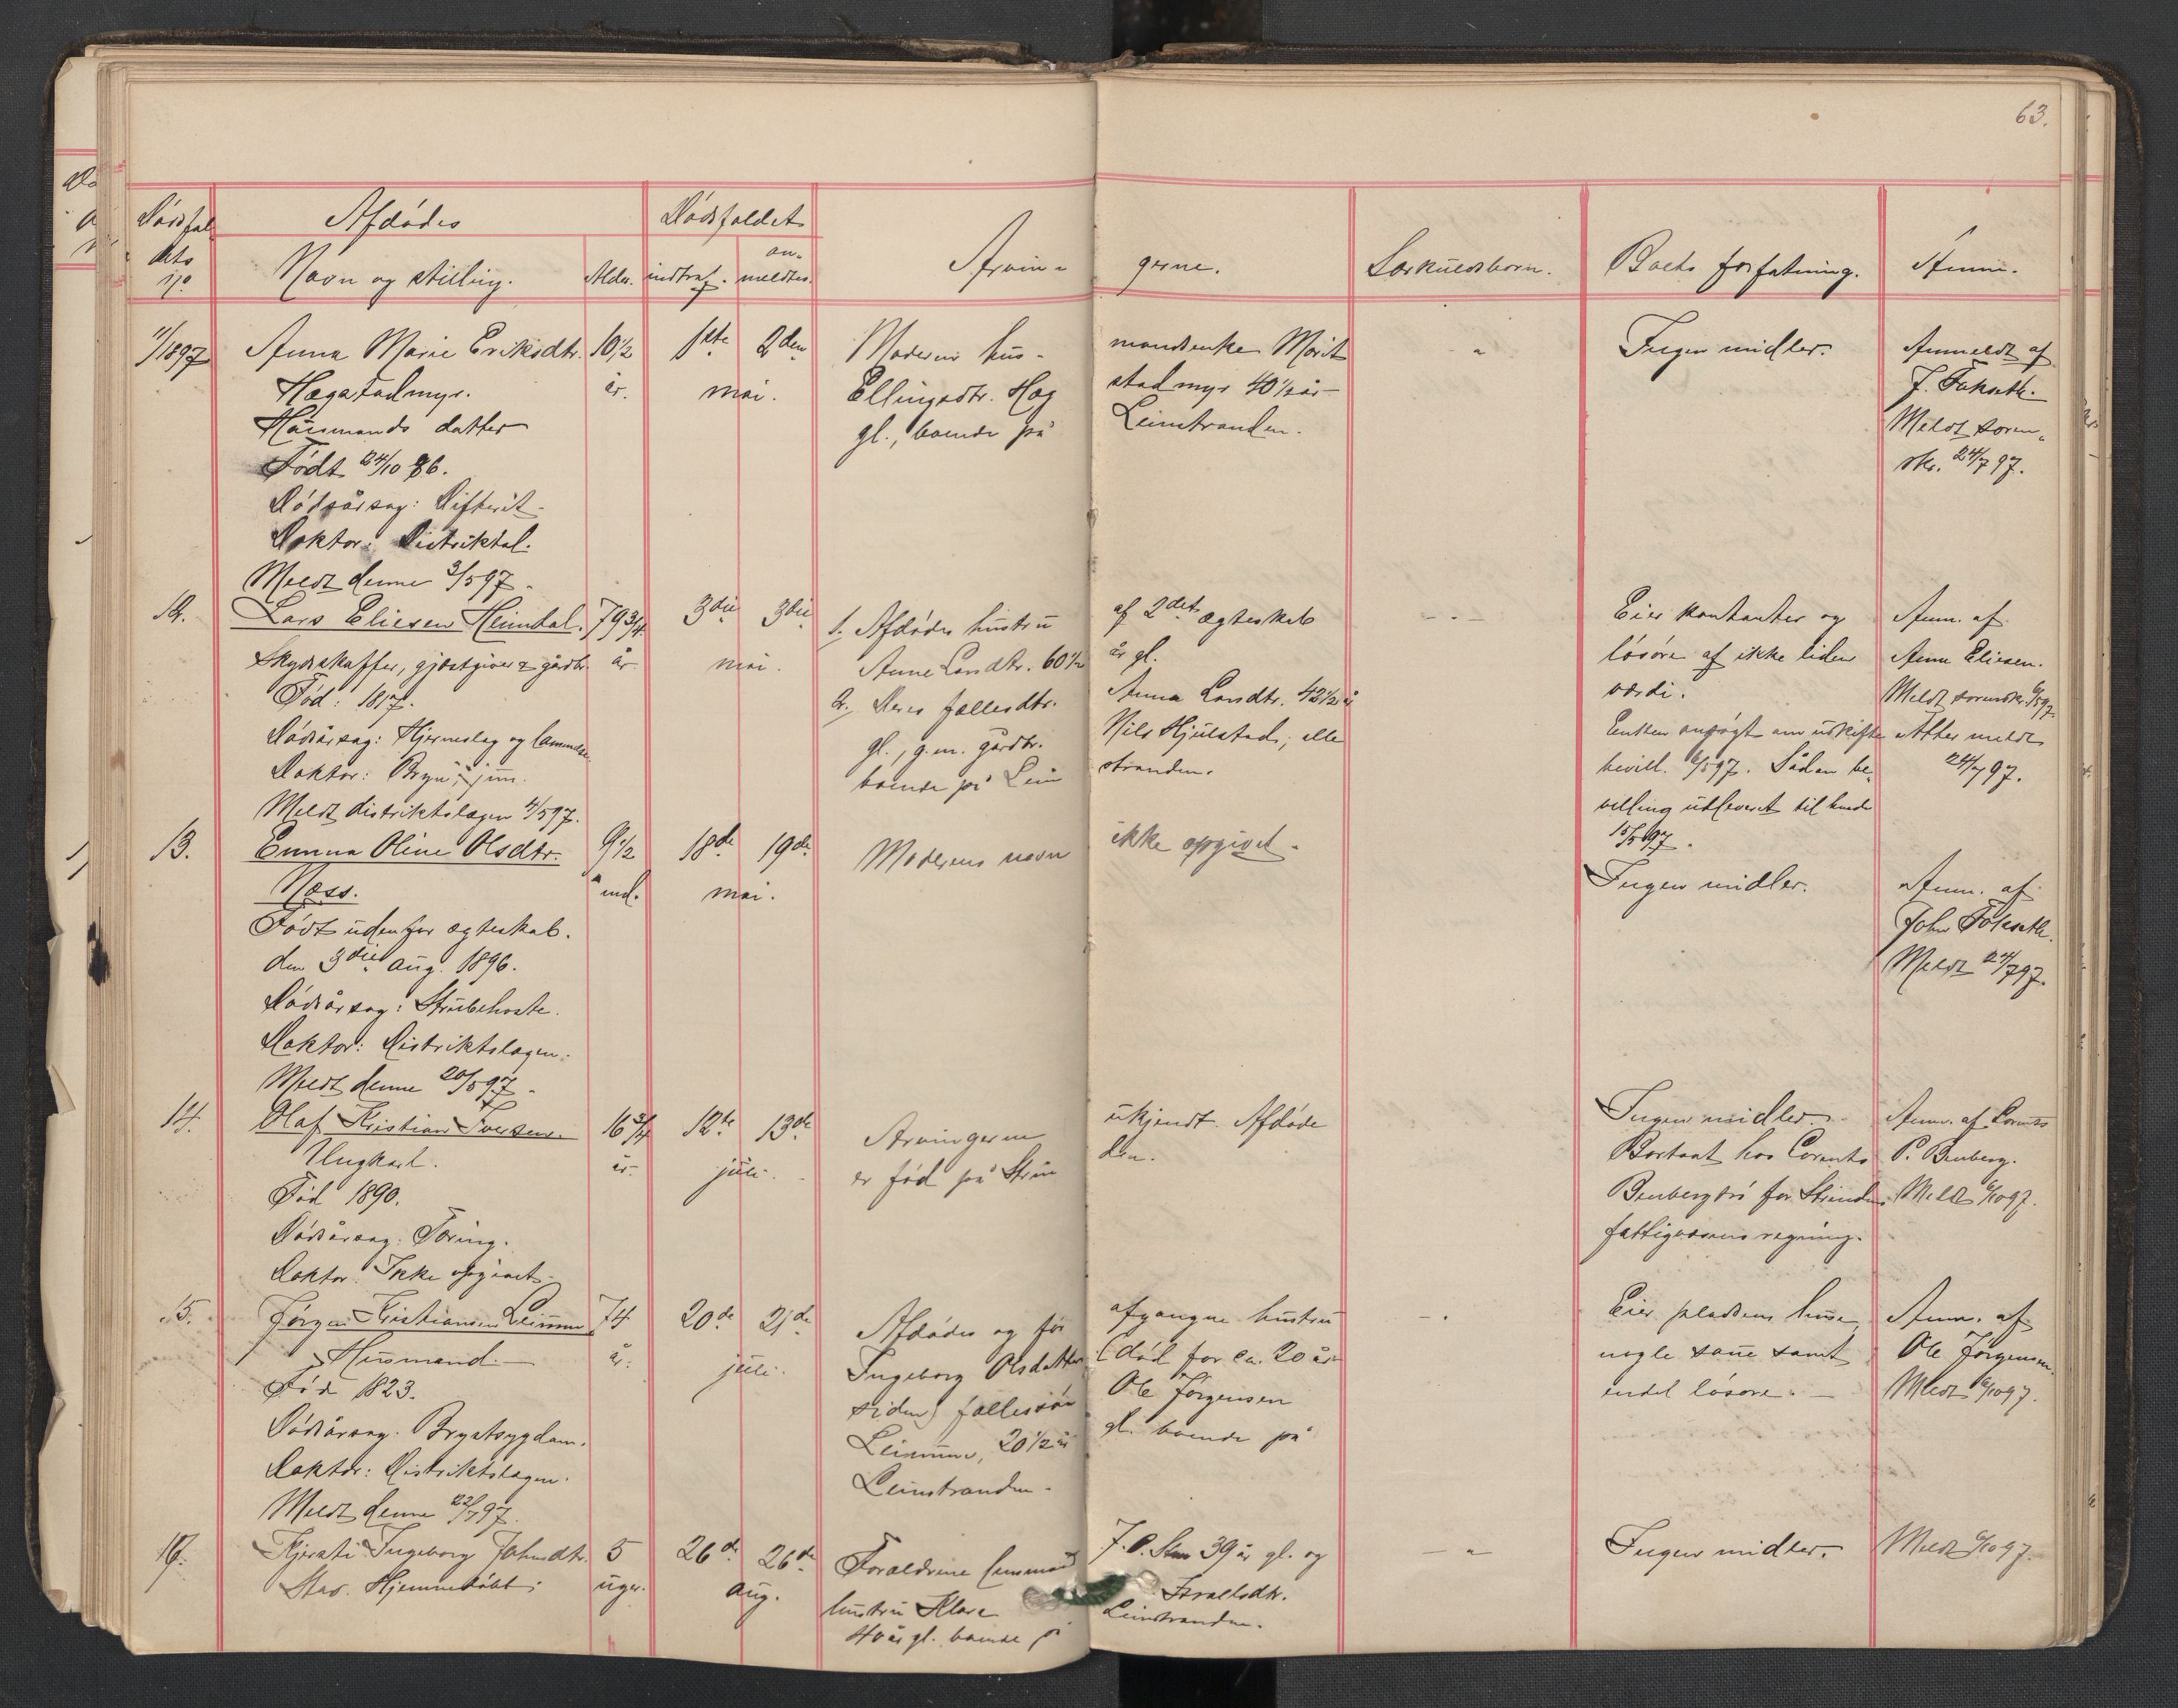 63.
Dødsfal
dets
no
Afdødes
Navn og stilling.
Alder.
Dødsfaldet
indtraf.
an-
meldtes.
Arvin-
gerne.
Særkuldsbørn.
Boets forfatning.
Anm.
11/1897
Anna Marie Eriksdtr.
Hægstadmyr.
Husmands datter
Født 24/10 86.
Dødsårsag: Difterit.
Doktor: Distriktsl.
Meldt denne 3/5 97.
10 1/2
år.
1ste 2den
mai.
Moderen hus-
mandsenke Marit
Ellingsdtr. Hæg
stadmyr 40 1/2 år
gl., boende på
Leinstranden.
"
Ingen midler.
Anmeldt af
J. Fokseth.
Meldt soren-
skr. 24/7 97.
12.
Lars Eliesen Heimdal.
Skydsskaffer, gjæstgiver & gårdbr.
Fød: 1817.
Dødsårsag: Hjerneslag og lammelse.
Doktor: Bryn, jun.
Meldt distriktslægen 4/5 97.
79 3/4
år
3die 3die
mai.
1. Afdødes hustru
af 2det ægteskab
Anne Larsdtr. 60 1/2
år gl.
2. Deres fællesdtr.
Anna Larsdtr. 42 1/2 år
gl., g.m. gårdbr.
Nils Hjulstad; alle
boende på Lein
stranden.
- " -
Eier kontanter og
løsøre af ikke liden
værdi.
Enken ansøgt om uskifte
bevill. 6/5 97. Sådan be-
villing udleveret til hende
15/5 97.
Anm. af
Anne Eliesen.
Meldt sorenskr. 6/5 97.
Atter meldt
24/7 97.
13.
Emma Oline Olsdtr.
Næss.
Født udenfor ægteskab.
den 3die aug. 1896.
Dødsårsag: Strubehoste.
Doktor: Distriktslægen.
Meldt denne 20/5 97.
9 1/2
md.
18de 19de
mai.
Moderens navn
ikke opgivet.
Ingen midler.
Anm. af
John Fokseth.
Meldt 24/7 97.
14.
Olaf Kristian Iversen.
Ungkarl.
Fød 1890.
Dødsårsag: Tæring.
Doktor: Ikke opgivet.
16 3/4
år
12te 13de
juli.
Arvingerne
ukjendt. Afdøde
er fød på Strin
den.
Ingen midler.
Bortsat hos Corents
Benbergsrø for Strindens
fattigvæsens regning.
Anm. af Corents
P. Benberg.
Meldt 6/10 97.
15.
Jørgen Kristiansen Leinmo
Husmand.
Fød 1823.
Dødsårsag: Brystsygdom.
Doktor: Distriktslægen.
Meldt denne 22/7 97.
74
år.
20de 21de
juli.
Afdødes og før
afgangne hustru
Ingeborg Olsdatter
(død for ca. 20 år
siden) fællessøn
Ole Jørgensen
Leinmo, 20 1/2 år
gl. boende på
Leinstranden.
- "
Eier pladsens huse,
nogle saue samt
endel løsøre.
Anm. af
Ole Jørgensen.
Meldt 6/10 97.
16.
Kjersti Ingeborg Johnsdtr.
Stav. Hjemmedøbt.
5
uger.
26de 26de
aug.
Forældrene husmand
J. O. Stav 39 år gl. og
hustru Klara
Israelsdtr.
40 år gl. boende på
Leinstranden.
- "
Ingen midler.
Meldt 6/10 97.